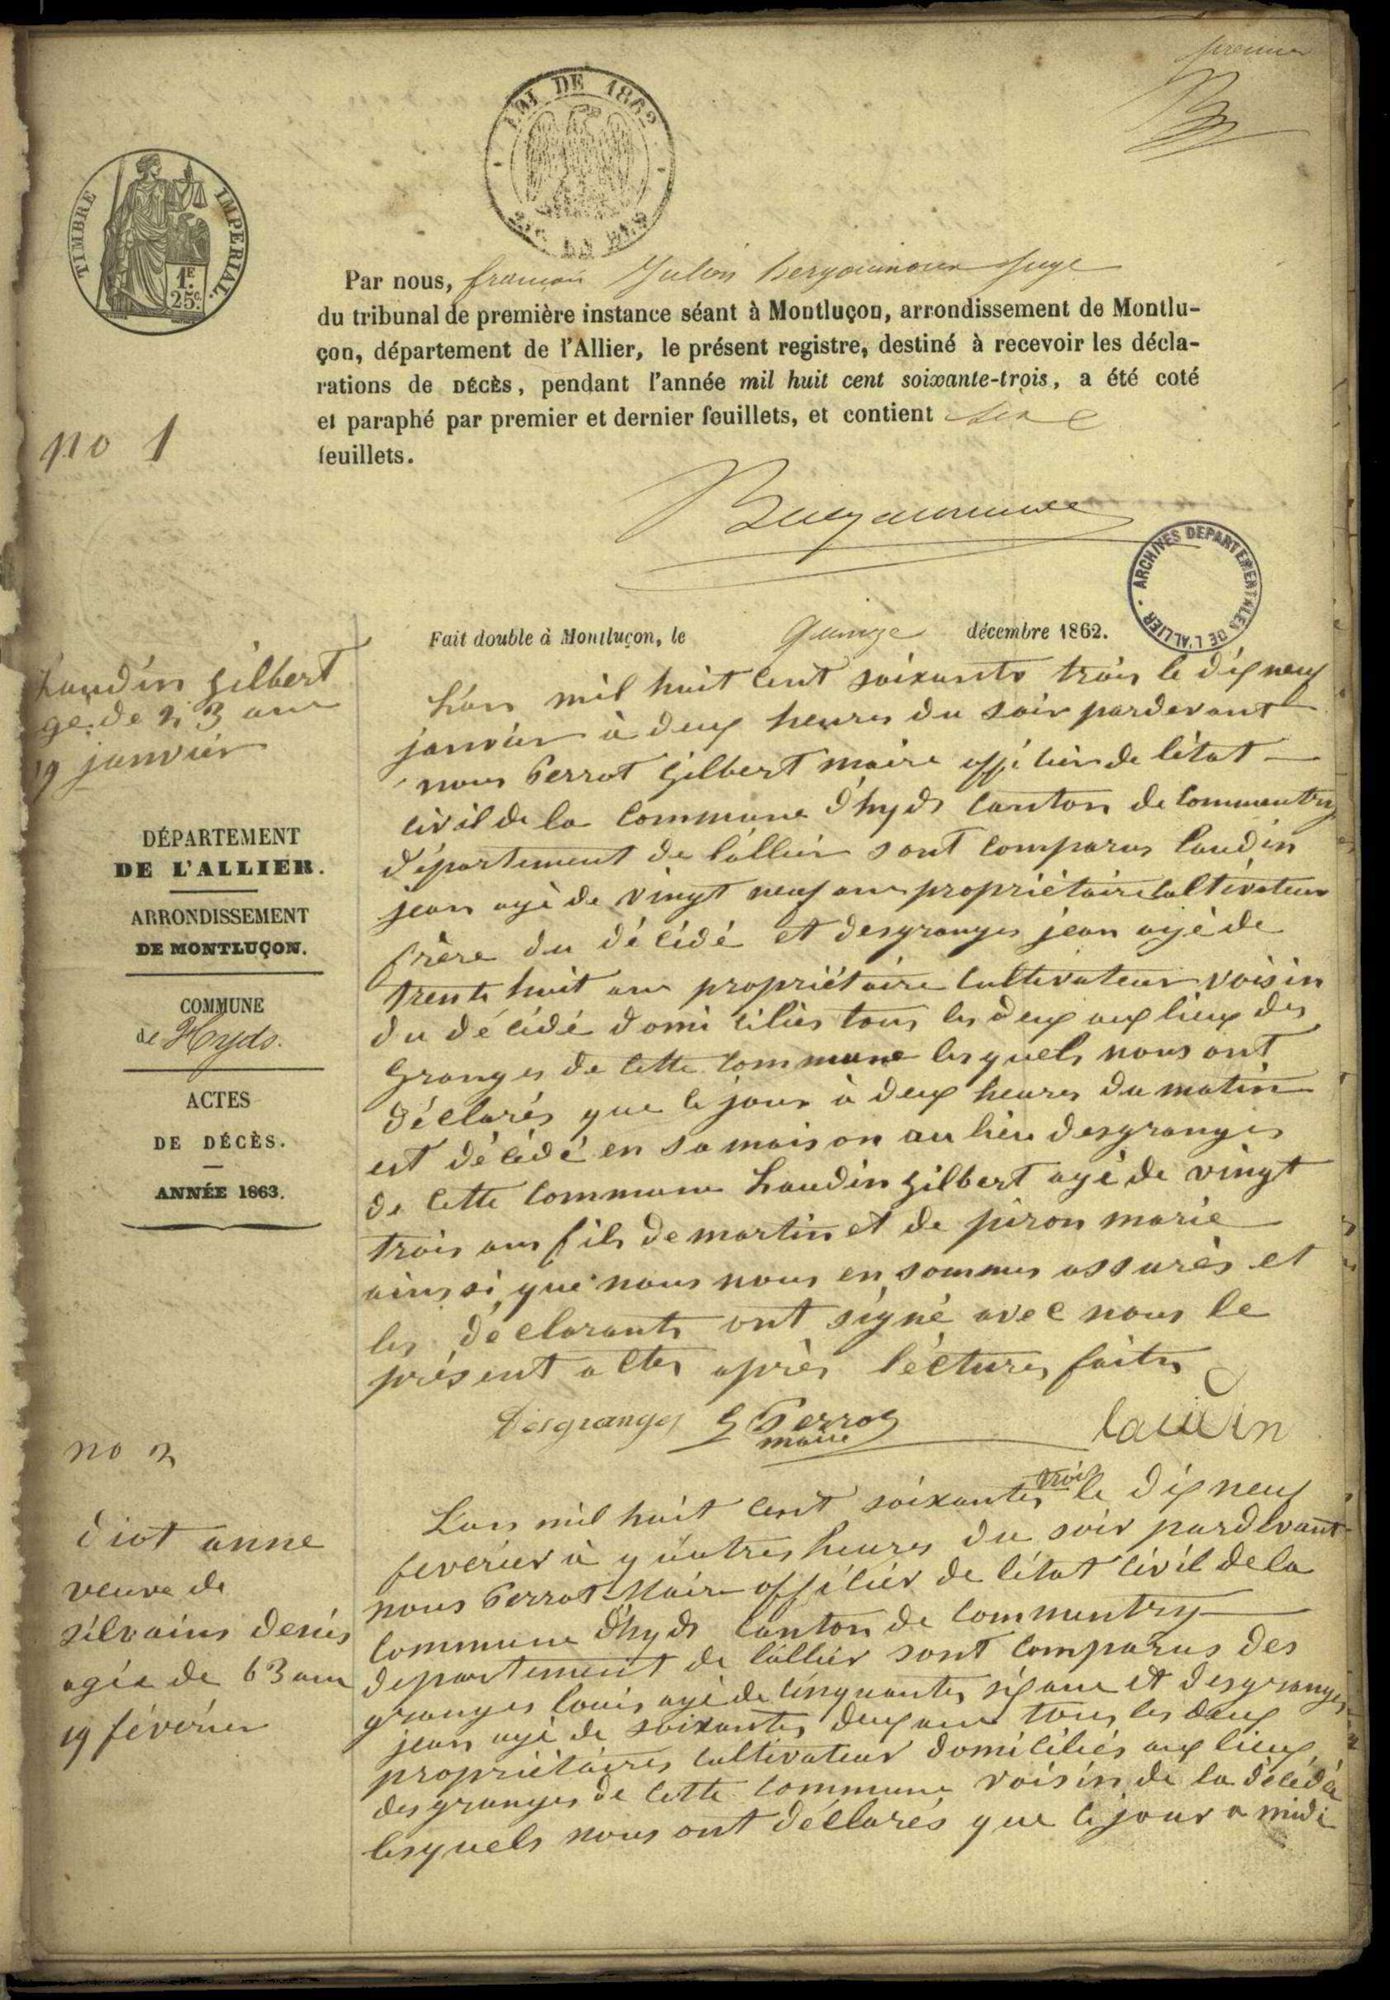 premier
LOI DE 1862
TIMBRE IMPERIAL.
1F.
25c.
Par nous, françois Julien Bergounioux Juge
du tribunal de première instance séant à Montluçon, arrondissement de Montlu-
çon, département de l'Allier, le présent registre, destiné à recevoir les décla-
rations de DÉCÈS, pendant l'année mil huit cent soixante-trois, a été coté
et paraphé par premier et dernier feuillets, et contient
feuillets.
ARCHIVES DEPARTEMENTALES DE L'ALLIER
Fait double à Montluçon, le quinze décembre 1862.
no 1
Laudin gilbert
gé de 23 ans
19 janvier
DÉPARTEMENT
DE L'ALLIER.
ARRONDISSEMENT
DE MONTLUÇON.
COMMUNE
de Hyds.
ACTES
DE DÉCÈS.
ANNÉE 1863.
L'an mil huit cent soixante trois le dix neuf
janvier à deux heures du soir pardevant
nous Perrot Gilbert maire officier de l'état
civil de la commune d'hyds canton de commentry
département de l'allier sont comparus Laudin
jean agé de vingt neuf ans propriétaire cultivateur
frère du décédé et desgranges jean agé de
trente huit ans propriétaire cultivateur voisin
du décédé domiciliés tous les deux aux lieux des
granges de cette commune lesquels nous ont
déclarés que ce jour à deux heures du matin
est décédé en sa maison au lieu desgranges
de cette commune Laudin gilbert agé de vingt
trois ans fils de martin et de piron marie
ainssi que nous nous en sommes assurés et
les déclarants ont signé avec nous le
présent actes après léctures faites
Desgranges G Perrot Laudin
maire
no 2
diot anne
veuve de
silvains denis
agée de 63 ans
19 février
L'an mil huit cent soixantes trois le dix neuf
feverier à quatres heures du soir pardevant
nous Perrot Maire officier de l'état civil de la
commune d'hyds canton de commentry
departement de l'allier sont comparus des
granges louis agé de cinquantes six ans et desgranges
jean agé de soixantes deux ans tous les deux
propriétaires cultivateur domiciliés aux lieux
desgranges de cette commune voisin de la décédée
lesquels nous ont déclarés que ce jour a midi